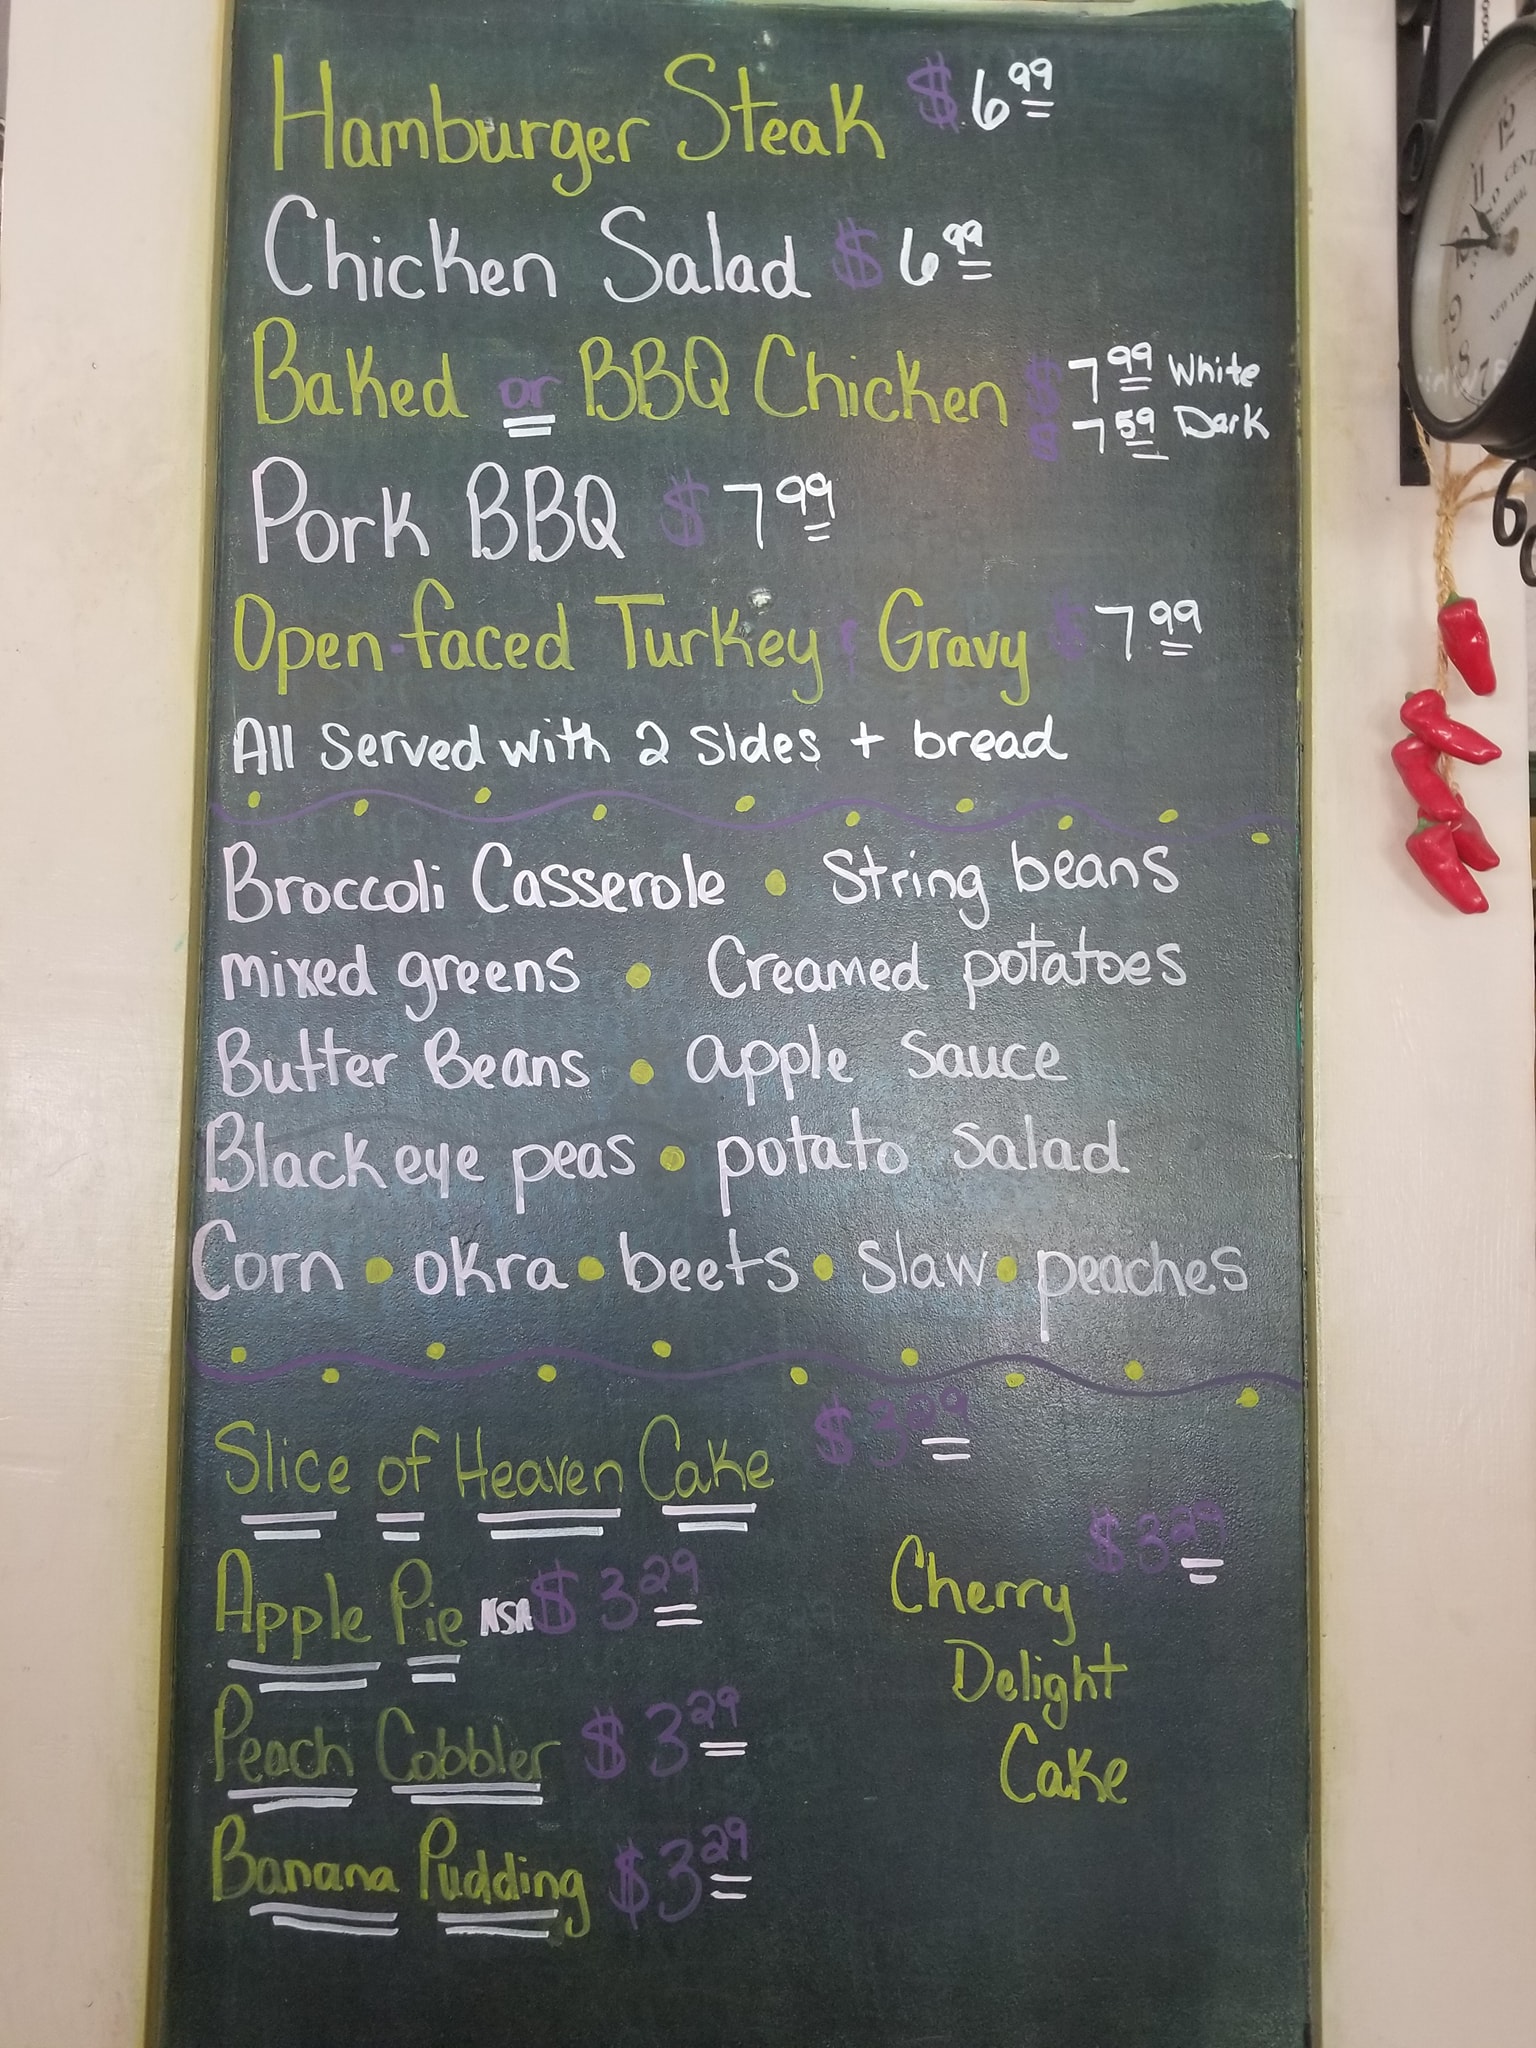 Hamburger Steak $6.99
Chicken Salad $6.99
Baked or BBQ Chicken $7.99 White
$7.59 Dark
Pork BBQ $7.99
Open-faced Turkey & Gravy $7.99
All served with 2 sides + bread
Broccoli Casserole • String beans
mixed greens • Creamed potatoes
Butter Beans • apple sauce
Blackeye peas • potato salad
Corn • okra • beets • slaw • peaches
Slice of Heaven Cake $3.29
Apple Pie NSA $3.29
Cherry $3.29
Delight
Cake
Peach Cobbler $3.29
Banana Pudding $3.29
12
11
10
9
8
7
TERMINAL
NEW YORK